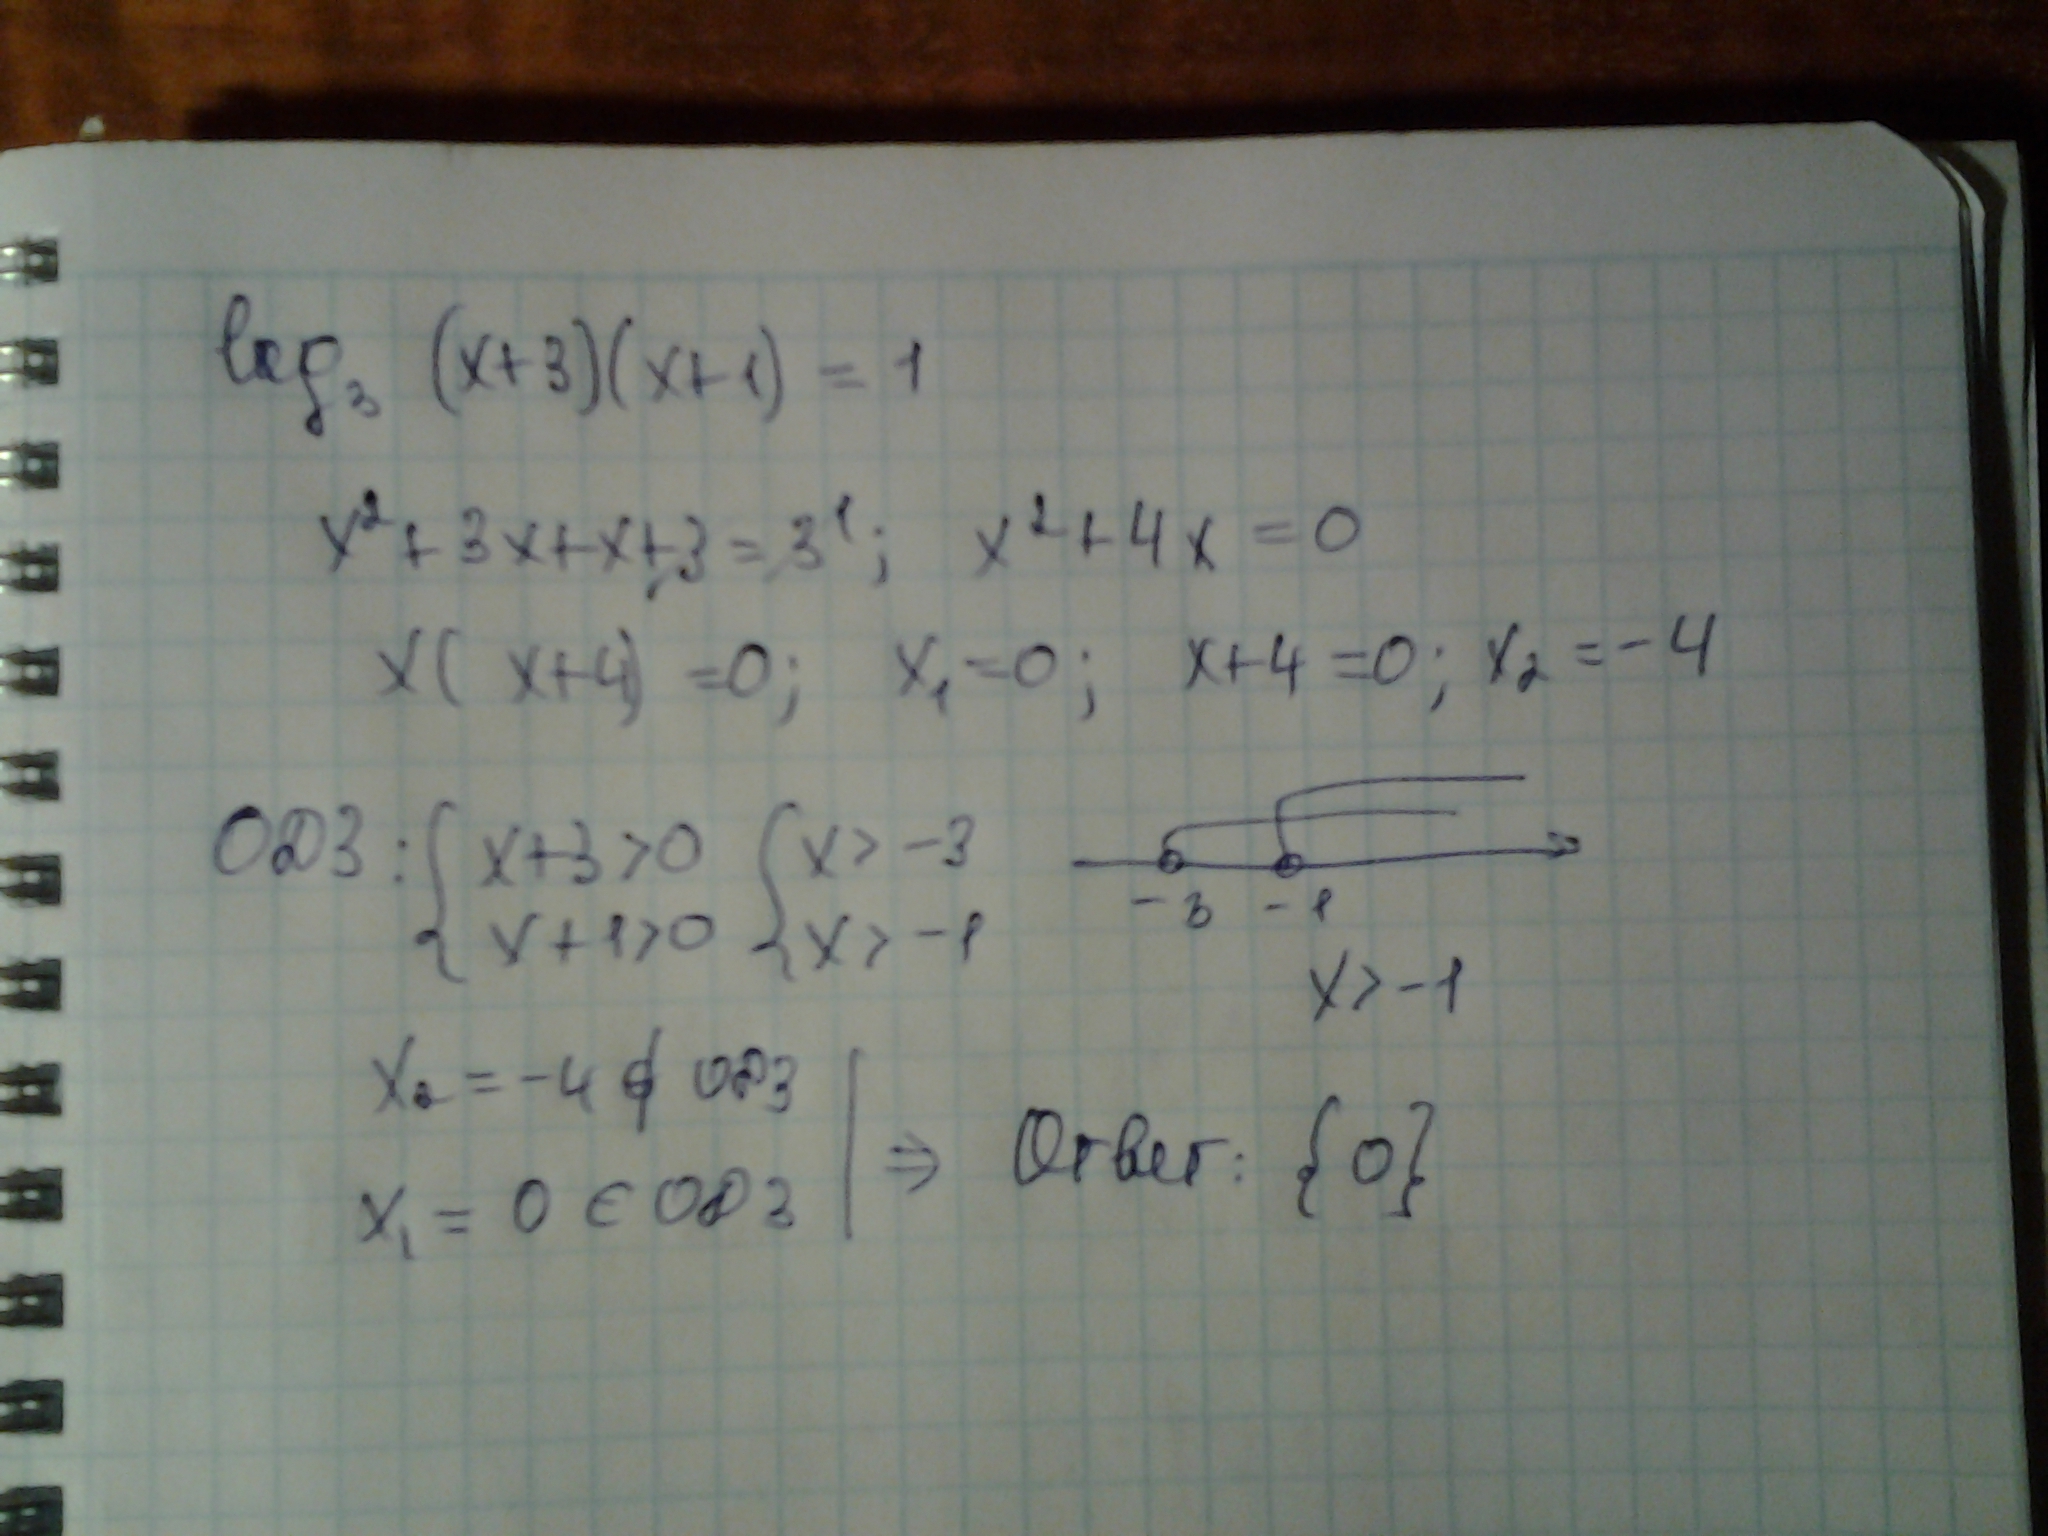 log₃ (x+3)(x+1) = 1
x²+3x+x+3=3¹; x²+4x=0
x(x+4)=0; x₁=0; x+4=0; x₂=-4
ОДЗ: { x+3>0 { x>-3
x+1>0 x>-1
-3 -1
x>-1
x₂=-4 ∉ ОДЗ
x₁=0 ∈ ОДЗ
⇒ Ответ: {0}